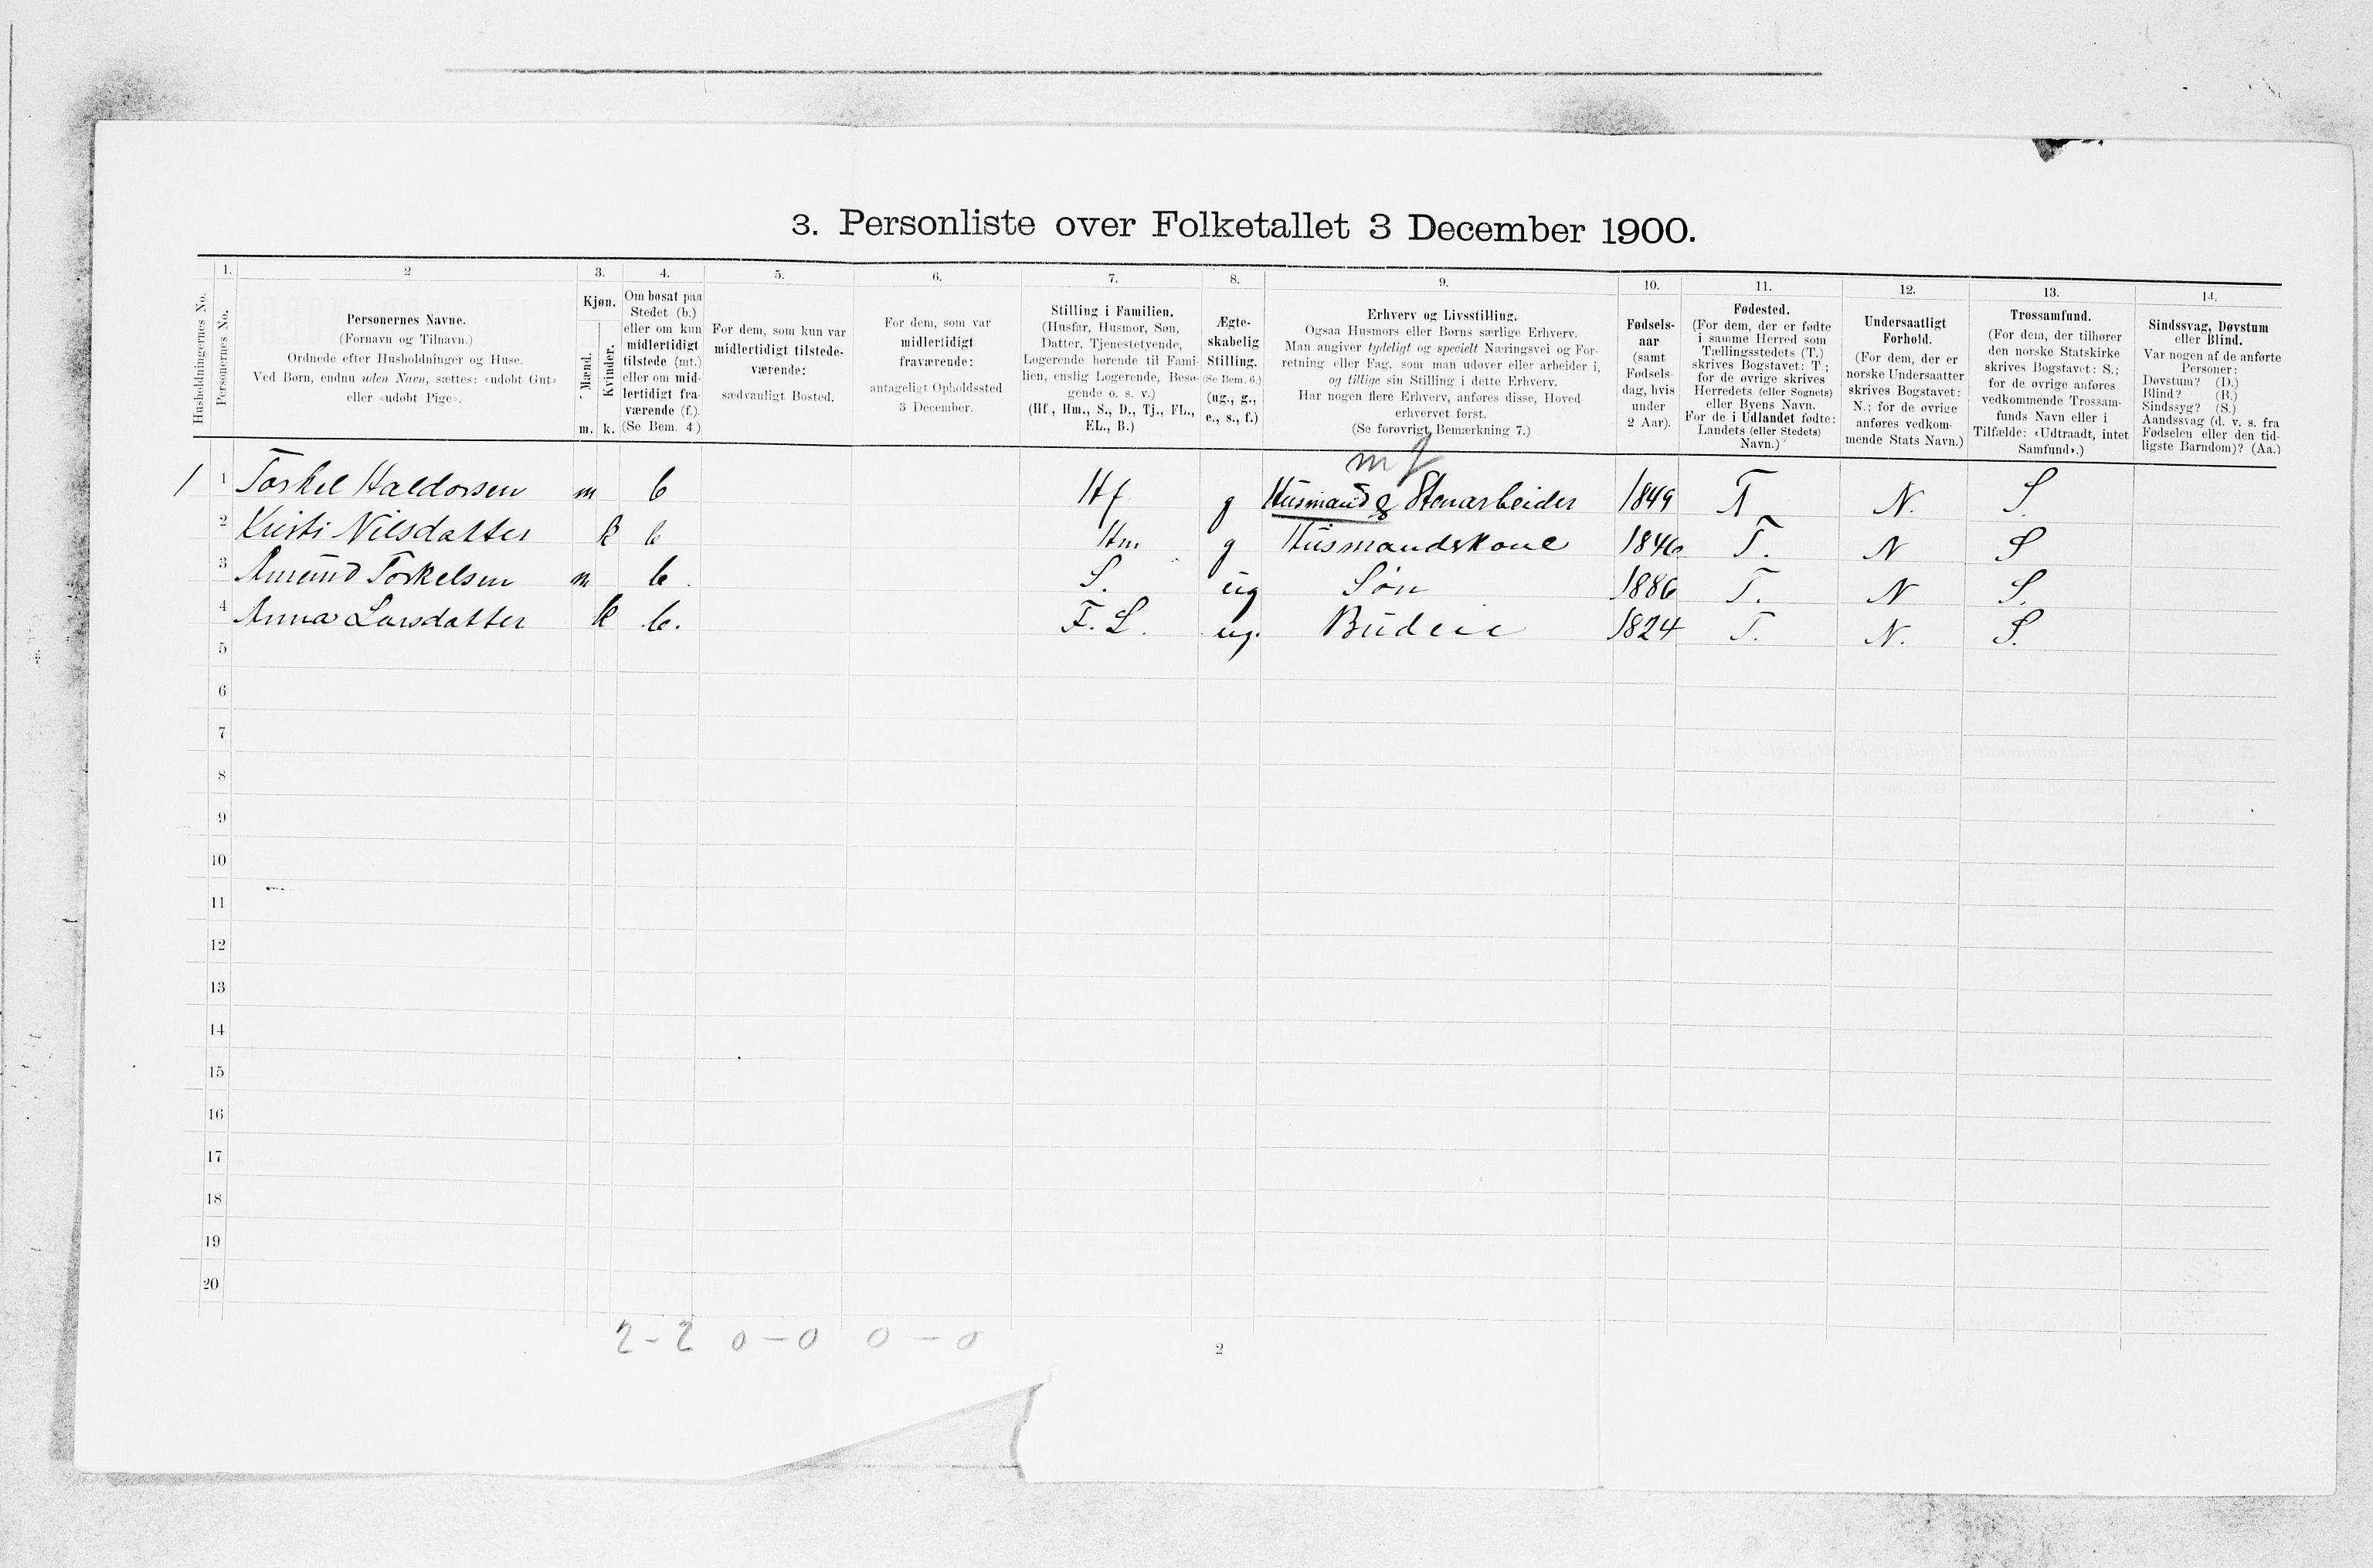 3. Personliste over Folketallet 3 December 1900.
Husholdningernes No.
1.
Personernes No.
2
Personernes Navne.
(Fornavn og Tilnavn.)
Ordnede efter Husholdninger og Huse.
Ved Børn, endnu uden Navn, sættes: «udøbt Gut»
eller «udøbt Pige».
3.
Kjøn.
Mænd.
Kvinder.
m. k.
4.
Om bosat paa
Stedet (b.)
eller om kun
midlertidigt
tilstede (mt.)
eller om mid-
lertidigt fra-
værende (f.).
(Se Bem. 4.)
5.
For dem, som kun var
midlertidigt tilstede-
værende:
sædvanligt Bosted.
6.
For dem, som var
midlertidigt
fraværende:
antageligt Opholdssted
3 December.
7.
Stilling i Familien.
(Husfar, Husmor, Søn,
Datter, Tjenestetyende,
Logerende hørende til Fami-
lien, enslig Logerende, Besø-
gende o. s. v.)
(Hf., Hm., S., D., Tj., FL.,
EL., B.)
8.
Ægte-
skabelig
Stilling.
(Se Bem. 6.)
(ug., g.,
e., s., f.)
9.
Erhverv og Livsstilling.
Ogsaa Husmors eller Børns særlige Erhverv.
Man angiver tydeligt og specielt Næringsvei og For-
retning eller Fag, som man udøver eller arbeider i,
og tillige sin Stilling i dette Erhverv.
Har nogen flere Erhverv, anføres disse, Hoved-
erhvervet først.
(Se forøvrigt Bemærkning 7.)
10.
Fødsels-
aar
(samt
Fødsels-
dag, hvis
under
2 Aar).
11.
Fødested.
(For dem, der er fødte
i samme Herred som
Tællingsstedets (T.)
skrives Bogstavet: T.;
for de øvrige skrives
Herredets (eller Sognets)
eller Byens Navn.
For de i Udlandet fødte:
Landets (eller Stedets)
Navn.)
12.
Undersaatligt
Forhold.
(For dem, der er
norske Undersaatter
skrives Bogstavet:
N.; for de øvrige
anføres vedkom-
mende Stats Navn.)
13.
Trossamfund.
(For dem, der tilhører
den norske Statskirke
skrives Bogstavet: S.;
for de øvrige anføres
vedkommende Trossam-
funds Navn eller i
Tilfælde: «Udtraadt, intet
Samfund».)
14.
Sindssvag, Døvstum
eller Blind.
Var nogen af de anførte
Personer:
Døvstum? (D.)
Blind? (B.)
Sindssyg? (S.)
Aandssvag (d. v. s. fra
Fødselen eller den tid-
ligste Barndom)? (Aa.)
1 1 Torkel Haldorsen m b Hf g Husmand & Stenarbeider 1849 T N. S.
2 Kristi Nilsdatter k b Hm g Husmandskone 1846 T. N S
3 Amund Torkelsen m b. S. ug Søn 1886 T. N S.
4 Anna Larsdatter k b. F. L. ug. Budeie 1824 T. N. S.
5
6
7
8
9
10
11
12
13
14
15
16
17
18
19
20
2 - 2 0 - 0 0 - 0
2